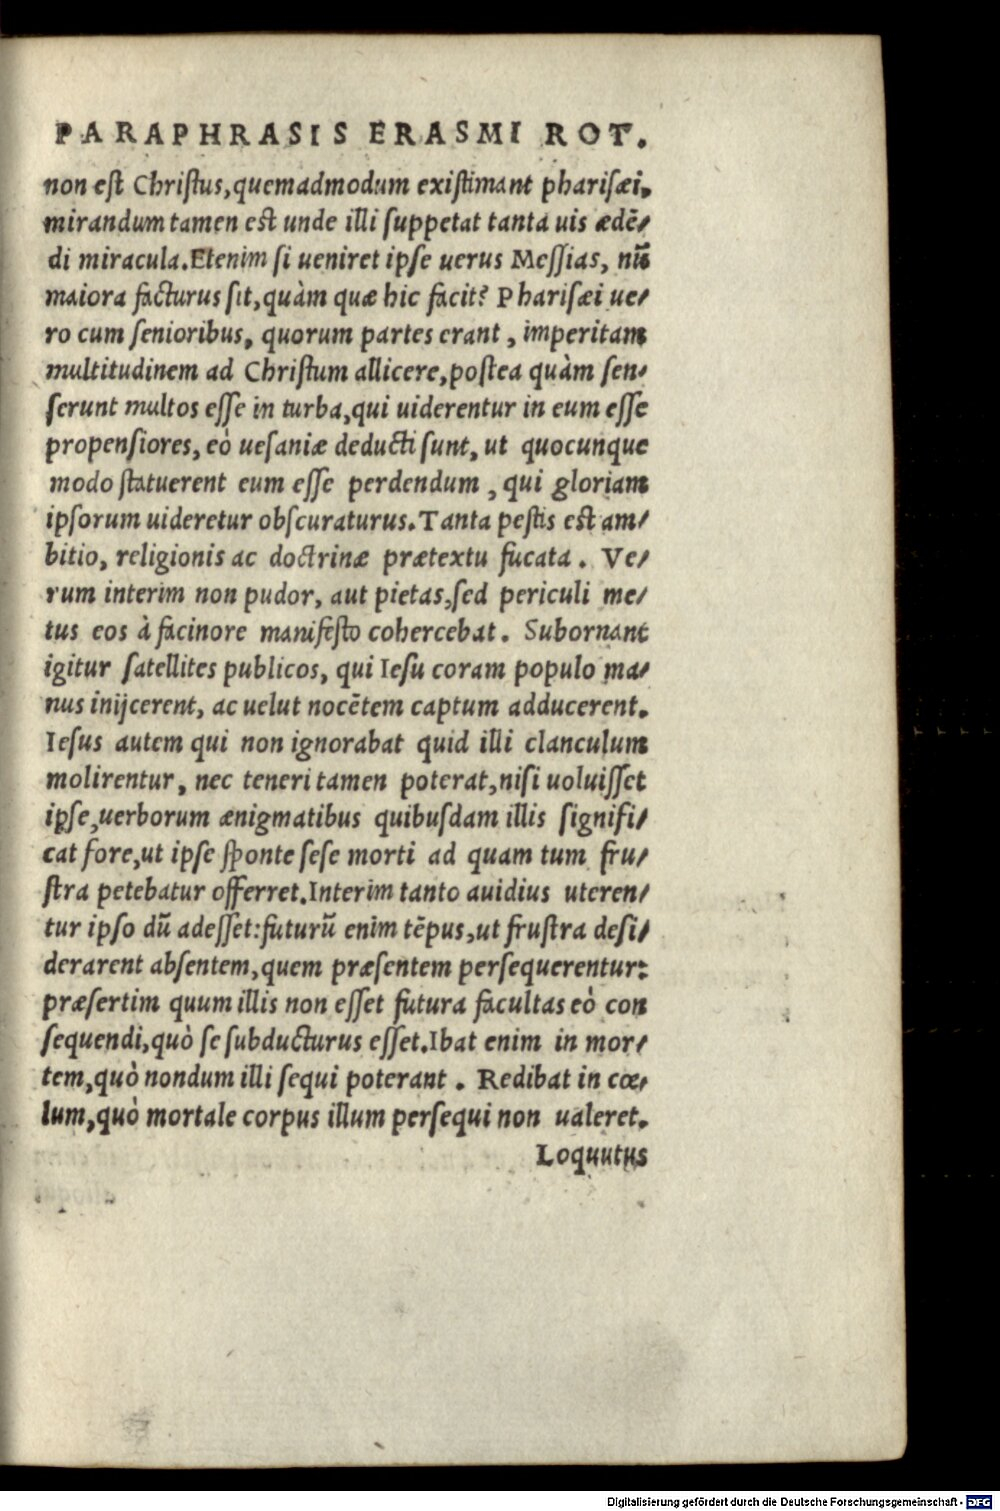 PARAPHRASIS ERASMI ROT.
non est Christus, quemadmodum existimant pharisæi,
mirandum tamen est unde illi suppetat tanta uis ædē⸗
di miracula. Etenim si ueniret ipse uerus Messias, nū
maiora facturus sit, quàm quæ hic facit? Pharisæi ue⸗
ro cum senioribus, quorum partes erant, imperitam
multitudinem ad Christum allicere, postea quàm sen⸗
serunt multos esse in turba, qui uiderentur in eum esse
propensiores, eò uesaniæ deducti sunt, ut quocunque
modo statuerent eum esse perdendum, qui gloriam
ipsorum uideretur obscuraturus. Tanta pestis est am⸗
bitio, religionis ac doctrinæ prætextu fucata. Ve⸗
rum interim non pudor, aut pietas, sed periculi me⸗
tus eos à facinore manifesto cohercebat. Subornant
igitur satellites publicos, qui Iesu coram populo ma⸗
nus inijcerent, ac uelut nocētem captum adducerent.
Iesus autem qui non ignorabat quid illi clanculum
molirentur, nec teneri tamen poterat, nisi uoluisset
ipse, uerborum ænigmatibus quibusdam illis signifi⸗
cat fore, ut ipse sponte sese morti ad quam tum fru⸗
stra petebatur offerret. Interim tanto auidius uteren⸗
tur ipso dū adesset: futurū enim tēpus, ut frustra desi⸗
derarent absentem, quem præsentem persequerentur:
præsertim quum illis non esset futura facultas eò con
sequendi, quò se subducturus esset. Ibat enim in mor⸗
tem, quò nondum illi sequi poterant. Redibat in cœ⸗
lum, quò mortale corpus illum persequi non ualeret.
Loquutus
Digitalisierung gefördert durch die Deutsche Forschungsgemeinschaft - DFG